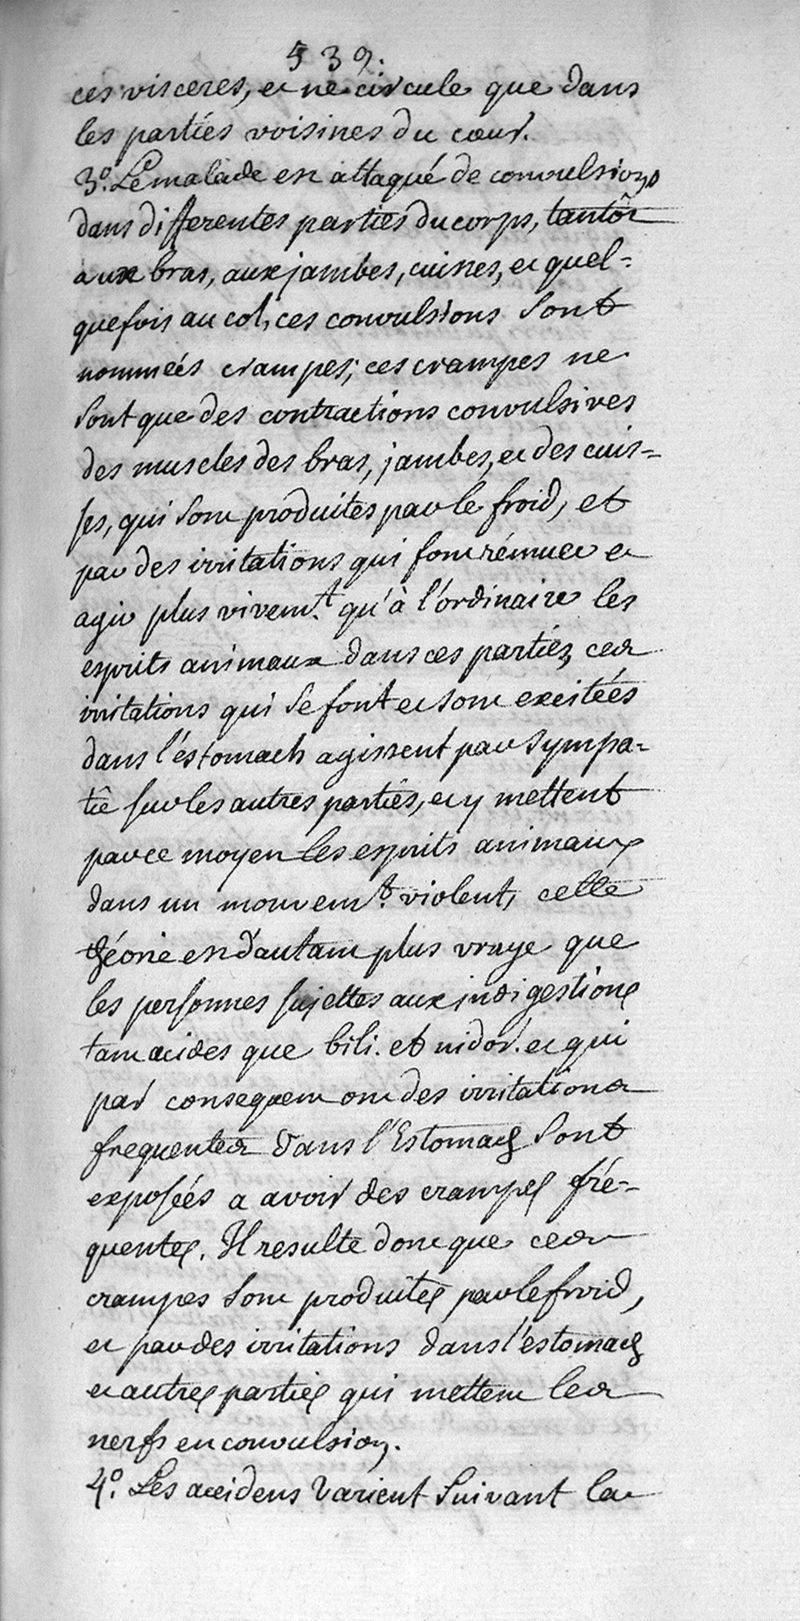 539.
ces visceres, et ne circule que dans
les parties voisines du cœur.
3.° Le malade est attaqué de convulsions
dans differentes parties du corps, tantôt
aux bras, aux jambes, cuisses, et quel=
quefois au col, ces convulsions sont
nommeés crampes; ces crampes ne
sont que des contractions convulsives
des muscles des bras, jambes, et des cuis=
ses, qui sont produites par le froid, et
par des irritations qui font rémuer et
agir plus vivem.t qu'à l'ordinaire les
esprits animaux dans ces parties, ces
irritations qui se font et sont exciteés
dans l'éstomach agissent par sympa=
tie sur les autres parties, et y mettent
par ce moyen les esprits animaux
dans un mouvem.t violent, cette
théorie est d'autant plus vraye que
les personnes sujettes aux indigestions
tant acides que bili. et nidor. et qui
par consequent ont des irritations
frequentes dans l'Estomach sont
exposéés a avoir des crampes fré=
quentes. Il resulte donc que ces
crampes sont produites par le froid,
et par des irritations dans l'éstomach
et autres parties qui mettent les
nerfs en convulsion.
4.° Les accidens varient suivant la